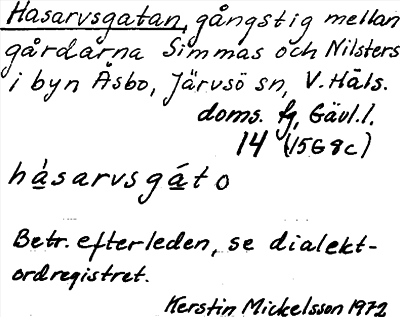 Hasarvsgatan, gångstig mellan
gårdarna Simmas och Nilsters
i byn Åsbo, Järvsö sn, V. Häls.
doms. fg, Gävl. l.
14 (1568c)
hàsarvsgáto
Betr. efterleden, se dialekt-
ordregistret.
Kerstin Mickelsson 1972